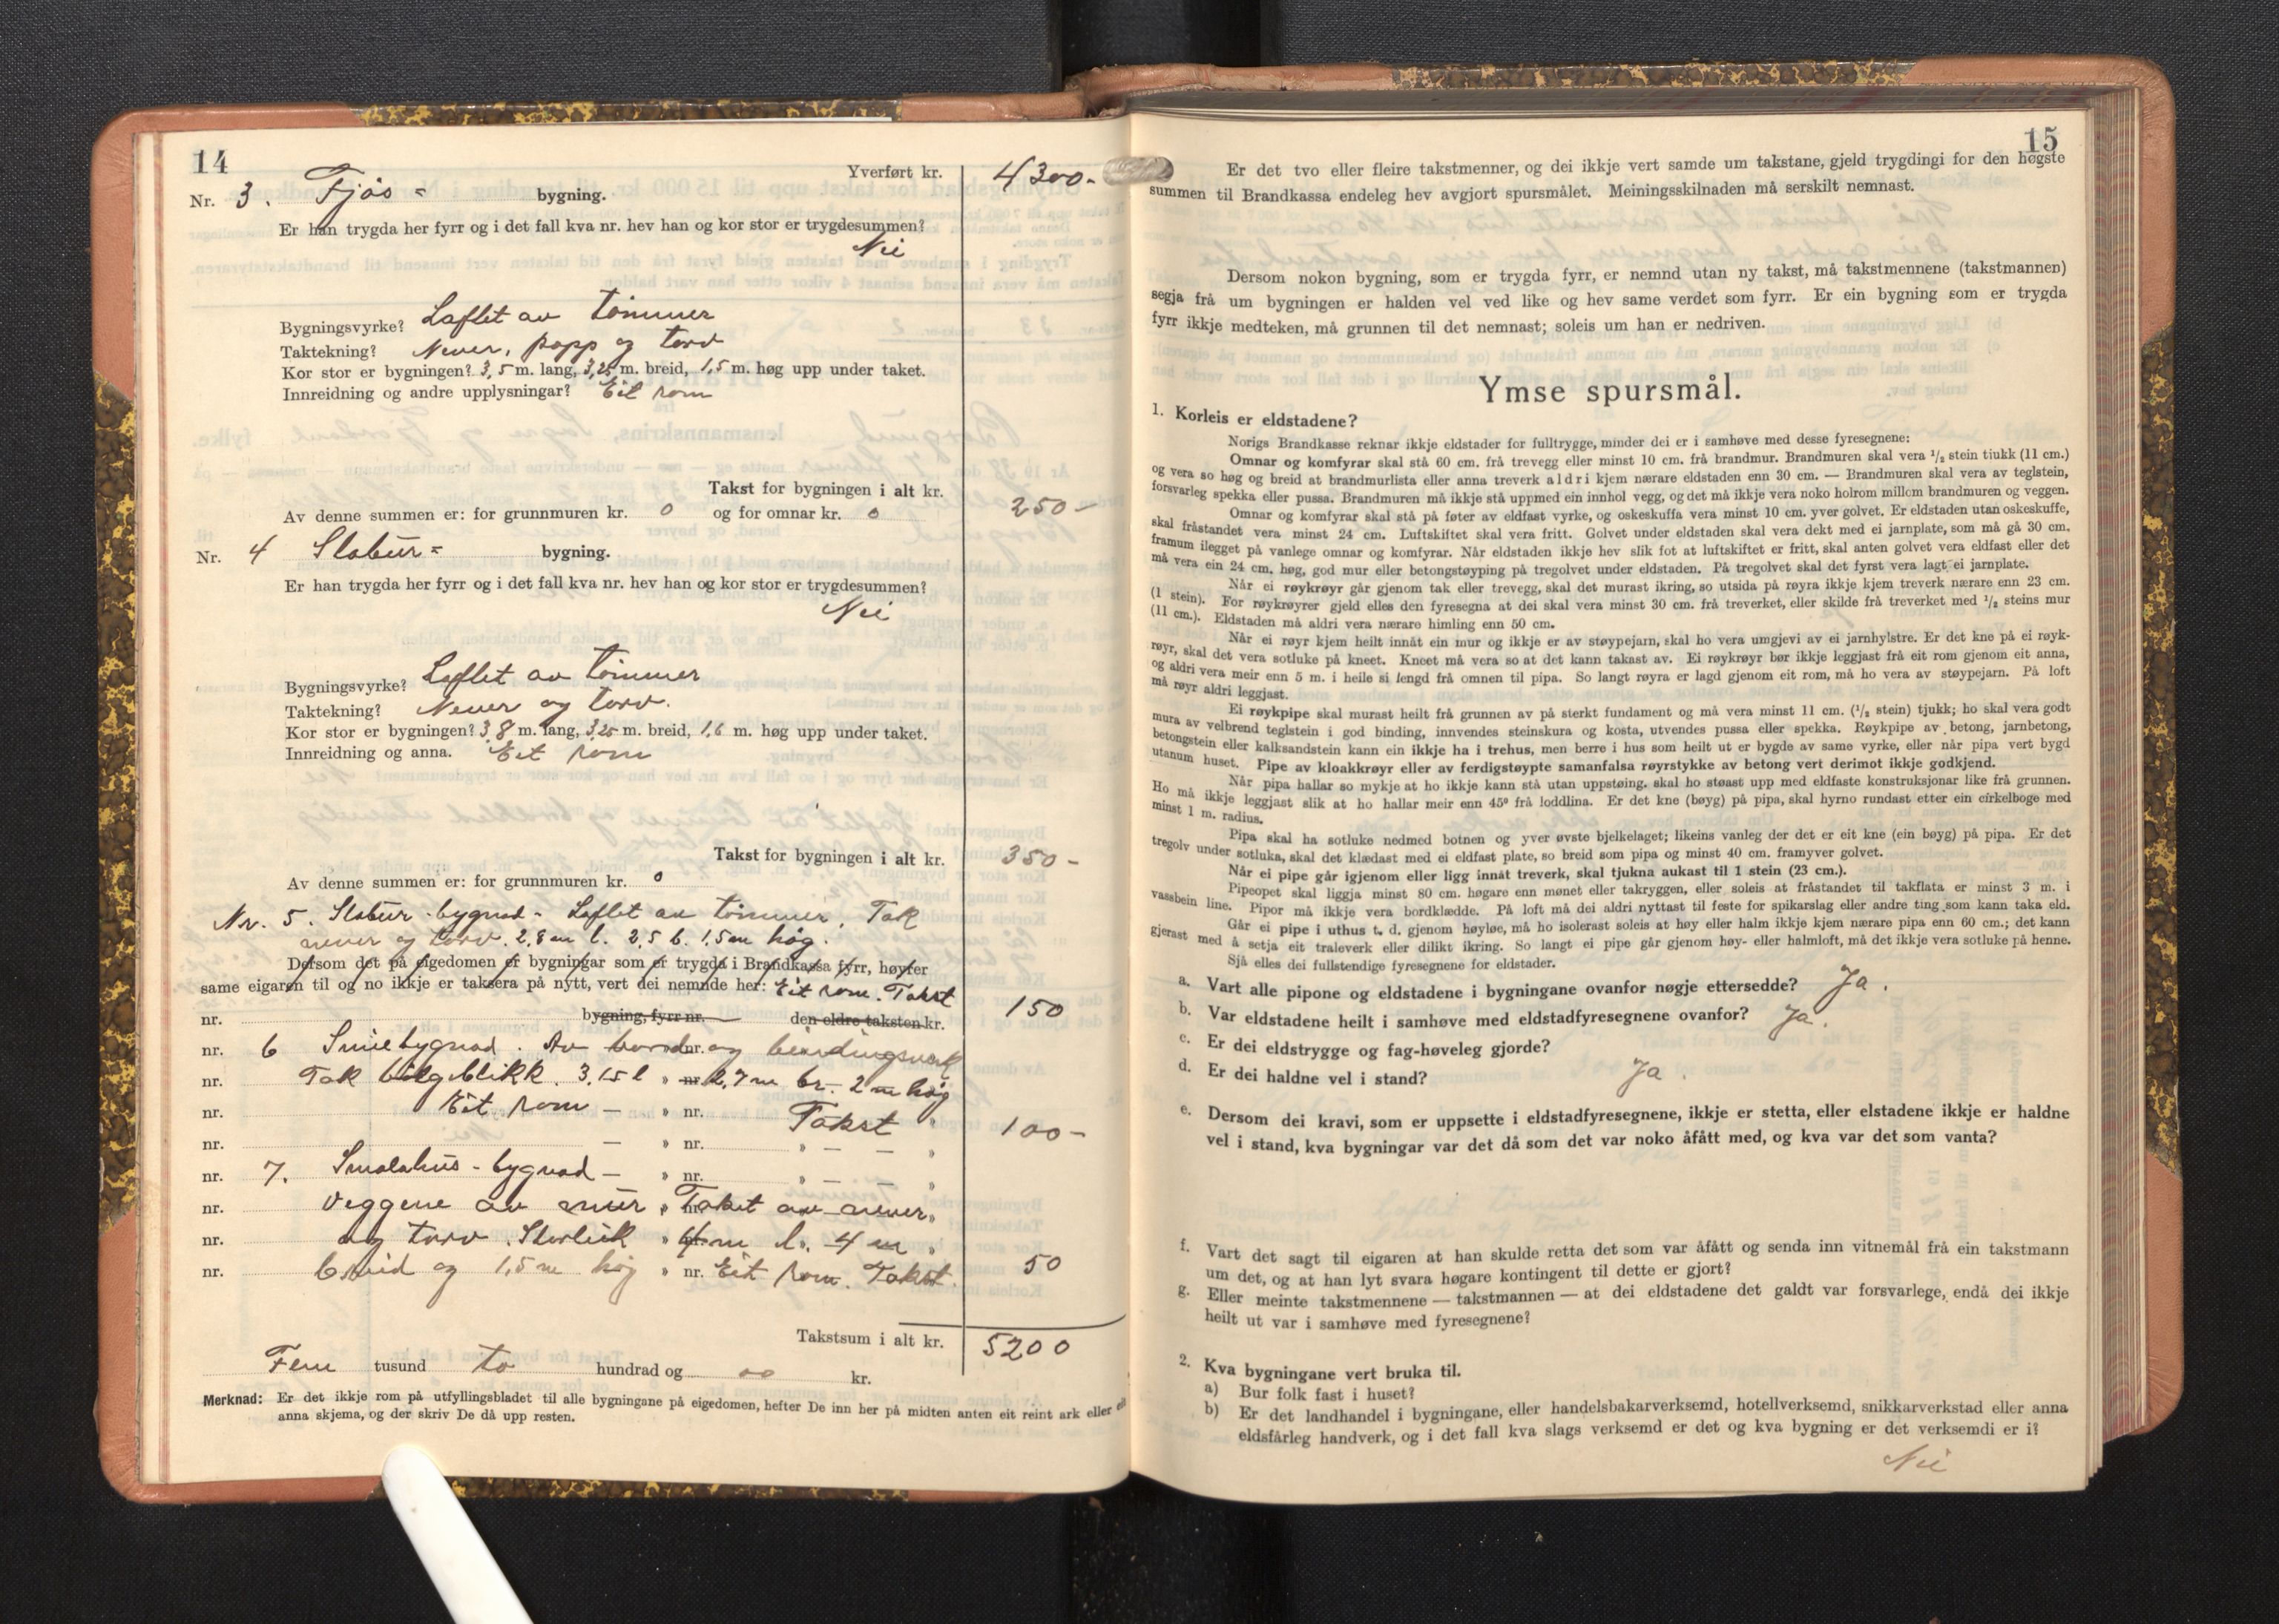 14
Yverført kr. 4300-
Nr. 3. Fjøs - bygning.
Er han trygda her fyrr og i det fall kva nr. hev han og kor stor er trygdesummen?
Nei
Bygningsvyrke? Laftet av tömmer
Taktekning? Never, papp og torv
Kor stor er bygningen? 3,5 m. lang, 3,25 m. breid, 1,5 m. høg upp under taket.
Innreidning og andre upplysningar? Eit rom
Takst for bygningen i alt kr. 250-
Av denne summen er: for grunnmuren kr. 0 og for omnar kr. 0
Nr. 4 Stabur - bygning.
Er han trygda her fyrr og i det fall kva nr. hev han og kor stor er trygdesummen?
Nei
Bygningsvyrke? Laftet av tömmer
Taktekning? Never og torv.
Kor stor er bygningen? 3,8 m. lang, 3,25 m. breid, 1,6 m. høg upp under taket.
Innreidning og anna. Eit rom
Takst for bygningen i alt kr. 350-
Av denne summen er: for grunnmuren kr. 0
Nr. 5. Stabur-bygnad - Laftet av tömmer. Tak
never og torv. 2,8 m l. 2,5 b. 1,5 m høg.
Dersom det på eigedomen er bygningar som er trygda i Brandkassa fyrr, høyrer
same eigaren til og no ikkje er taksera på nytt, vert dei nemnde her: Eit rom. Takst
nr. bygning, fyrr nr. den eldre taksten kr. 150
nr. 6 Smiebygnad. Av bord nr. og bindingsverk
nr. Tak bölgeblikk. 3,15 l » nr. 2,7 m br. 2 m høg
nr. Eit rom — » nr. Takst » 100-
nr. — » nr. » — — »
nr. 7. Smalahus-bygnad — » nr. » — — »
nr. Veggene av mur » nr. Taket av never »
nr. og torv. Storleik » 4 m l. 4 m »
nr. breid og 1,5 m høg » nr. Eit rom. Takst. 50
Takstsum i alt kr. 5200
Fem tusund to hundrad og 00 kr.
Merknad: Er det ikkje rom på utfyllingsbladet til alle bygningane på eigedomen, hefter De inn her på midten anten eit reint ark eller eit
anna skjema, og der skriv De då upp resten.
15
Er det tvo eller fleire takstmenner, og dei ikkje vert samde um takstane, gjeld trygdingi for den høgste
summen til Brandkassa endeleg hev avgjort spursmålet. Meiningsskilnaden må serskilt nemnast.
Dersom nokon bygning, som er trygda fyrr, er nemnd utan ny takst, må takstmennene (takstmannen)
segja frå um bygningen er halden vel ved like og hev same verdet som fyrr. Er ein bygning som er trygda
fyrr ikkje medteken, må grunnen til det nemnast; soleis um han er nedriven.
Ymse spursmål.
1. Korleis er eldstadene?
Norigs Brandkasse reknar ikkje eldstader for fulltrygge, minder dei er i samhøve med desse fyresegnene:
Omnar og komfyrar skal stå 60 cm. frå trevegg eller minst 10 cm. frå brandmur. Brandmuren skal vera 1/2 stein tjukk (11 cm.)
og vera so høg og breid at brandmurlista eller anna treverk aldri kjem nærare eldstaden enn 30 cm. — Brandmuren skal vera av teglstein,
forsvarleg spekka eller pussa. Brandmuren må ikkje stå uppmed ein innhol vegg, og det må ikkje vera noko holrom millom brandmuren og veggen.
Omnar og komfyrar skal stå på føter av eldfast vyrke, og oskeskuffa vera minst 10 cm. yver golvet. Er eldstaden utan oskeskuffe,
skal fråstandet vera minst 24 cm. Luftskiftet skal vera fritt. Golvet under eldstaden skal vera dekt med ei jarnplate, som må gå 30 cm.
framum ilegget på vanlege omnar og komfyrar. Når eldstaden ikkje hev slik fot at luftskiftet er fritt, skal anten golvet vera eldfast eller det
må vera ein 24 cm. høg, god mur eller betongstøyping på tregolvet under eldstaden. På tregolvet skal det fyrst vera lagt ei jarnplate.
Når ei røykrøyr går gjenom tak eller trevegg, skal det murast ikring, so utsida på røyra ikkje kjem treverk nærare enn 23 cm.
(1 stein). For røykrøyrer gjeld elles den fyresegna at dei skal vera minst 30 cm. frå treverket, eller skilde frå treverket med 1/2 steins mur
(11 cm.). Eldstaden må aldri vera nærare himling enn 50 cm.
Når ei røyr kjem heilt innåt ein mur og ikkje er av støypejarn, skal ho vera umgjevi av ei jarnhylstre. Er det kne på ei røyk-
røyr, skal det vera sotluke på kneet. Kneet må vera so at det kann takast av. Ei røykrøyr bør ikkje leggjast frå eit rom gjenom eit anna,
og aldri vera meir enn 5 m. i heile si lengd frå omnen til pipa. So langt røyra er lagd gjenom eit rom, må ho vera av støypejarn. På loft
må røyr aldri leggjast.
Ei røykpipe skal murast heilt frå grunnen av på sterkt fundament og må vera minst 11 cm. (1/2 stein) tjukk; ho skal vera godt
mura av velbrend teglstein i god binding, innvendes steinskura og kosta, utvendes pussa eller spekka. Røykpipe av betong, jarnbetong,
betongstein eller kalksandstein kann ein ikkje ha i trehus, men berre i hus som heilt ut er bygde av same vyrke, eller når pipa vert bygd
utanum huset. Pipe av kloakkrøyr eller av ferdigstøypte samanfalsa røyrstykke av betong vert derimot ikkje godkjend.
Når pipa hallar so mykje at ho ikkje kann stå utan uppstøing. skal ho støast upp med eldfaste konstruksjonar like frå grunnen.
Ho må ikkje leggjast slik at ho hallar meir enn 45° frå loddlina. Er det kne (bøyg) på pipa, skal hyrno rundast etter ein cirkelboge med
minst 1 m. radius.
Pipa skal ha sotluke nedmed botnen og yver øvste bjelkelaget; likeins vanleg der det er eit kne (ein bøyg) på pipa. Er det
tregolv under sotluka, skal det klædast med ei eldfast plate, so breid som pipa og minst 40 cm. framyver golvet.
Når ei pipe går igjenom eller ligg innåt treverk, skal tjukna aukast til 1 stein (23 cm.).
Pipeopet skal liggja minst 80 cm. høgare enn mønet eller takryggen, eller soleis at fråstandet til takflata er minst 3 m. i
vassbein line. Pipor må ikkje vera bordklædde. På loft må dei aldri nyttast til feste for spikarslag eller andre ting som kann taka eld.
Går ei pipe i uthus t. d. gjenom høyløe, må ho isolerast soleis at høy eller halm ikkje kjem nærare pipa enn 60 cm.; det kann
gjerast med å setja eit traleverk eller dilikt ikring. So langt ei pipe går gjenom høy- eller halmloft, må det ikkje vera sotluke på henne.
Sjå elles dei fullstendige fyresegnene for eldstader.
a. Vart alle pipone og eldstadene i bygningane ovanfor nøgje ettersedde? Ja.
b. Var eldstadene heilt i samhøve med eldstadfyresegnene ovanfor? Ja.
c. Er dei eldstrygge og fag-høveleg gjorde?
d. Er dei haldne vel i stand? Ja.
e. Dersom dei kravi, som er uppsette i eldstadfyresegnene, ikkje er stetta, eller elstadene ikkje er haldne
vel i stand, kva bygningar var det då som det var noko åfått med, og kva var det som vanta?
f. Vart det sagt til eigaren at han skulde retta det som var åfått og senda inn vitnemål frå ein takstmann
um det, og at han lyt svara høgare kontingent til dette er gjort?
g. Eller meinte takstmennene — takstmannen — at dei eldstadene det galdt var forsvarlege, endå dei ikkje
heilt ut var i samhøve med fyresegnene?
2. Kva bygningane vert bruka til.
a) Bur folk fast i huset?
b) Er det landhandel i bygningane, eller handelsbakarverksemd, hotellverksemd, snikkarverkstad eller anna
eldsfårleg handverk, og i det fall kva slags verksemd er det og kva bygning er det verksemdi er i?
Nei